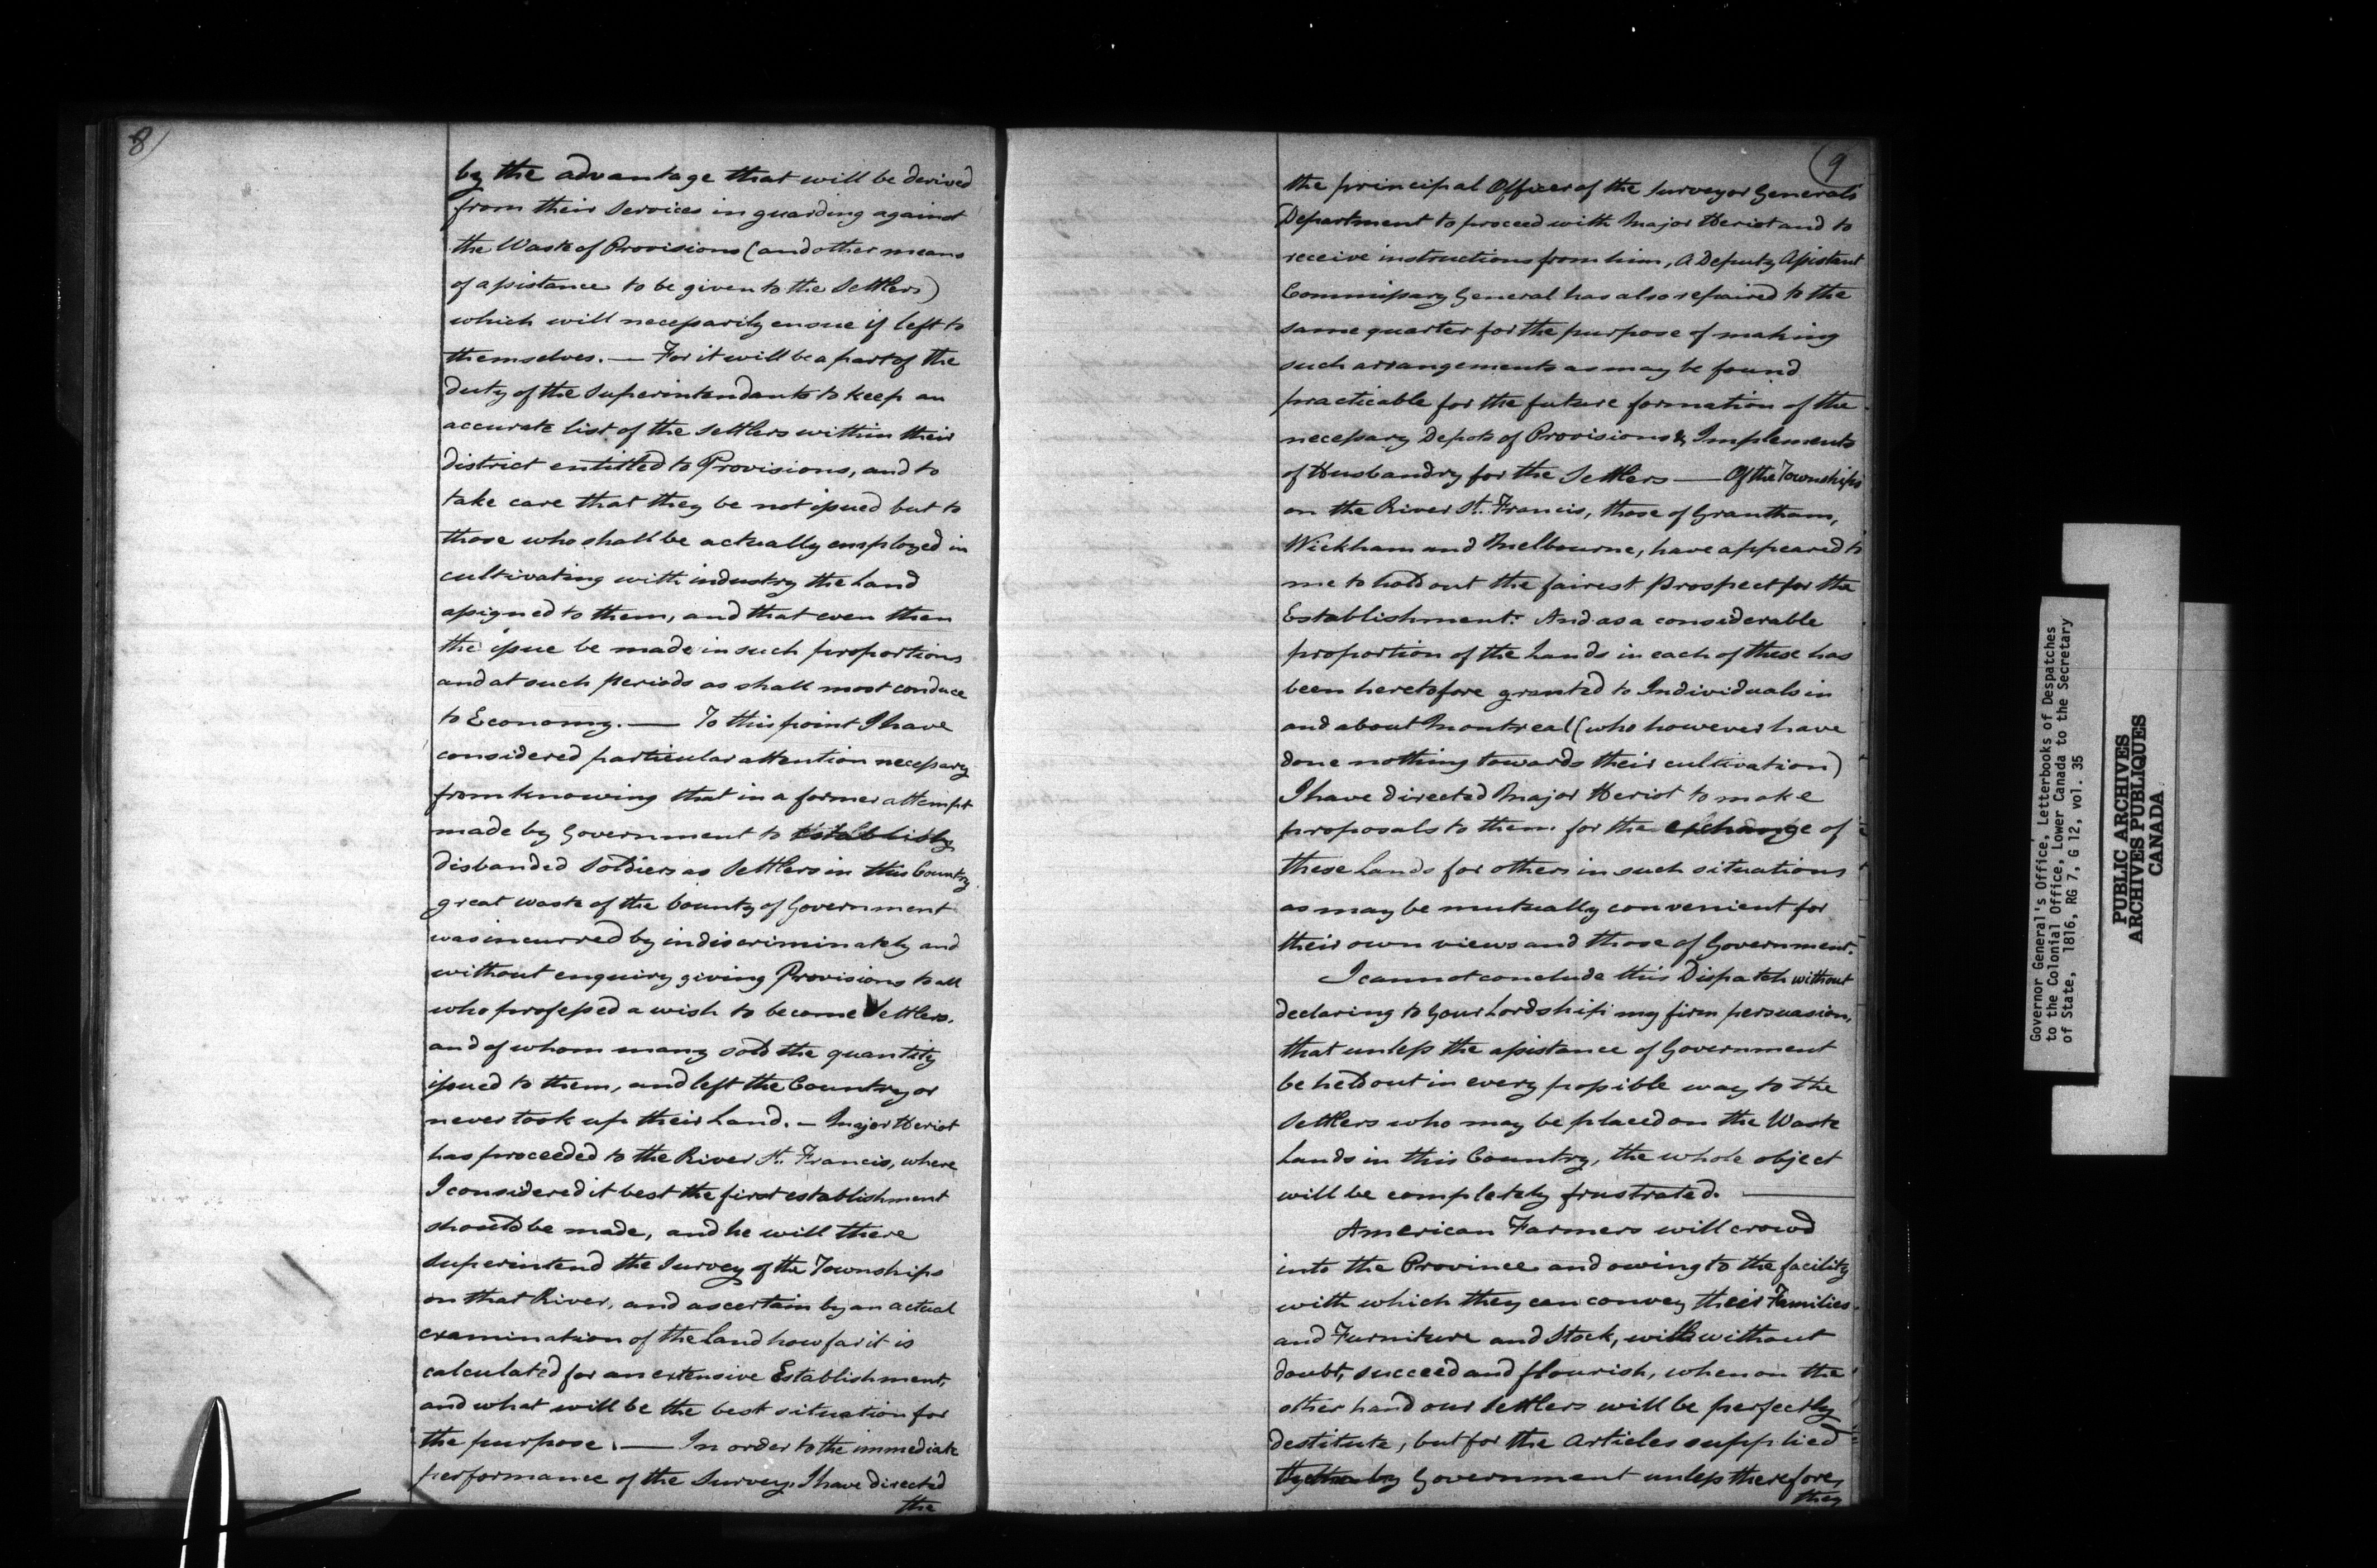 8)
by the advantage that will be derived
from their Services in guarding against
the Waste of Provisions (and other means
of assistance to be given to the Settlers)
which will necessarily ensue if left to
themselves. — For it will be a part of the
duty of the Superintendants to keep an
accurate list of the Settlers within their
district entitled to Provisions, and to
take care that they be not issued but to
those who shall be actually employed in
cultivating with industry the Land
assigned to them, and that even then
the issue be made in such proportions
and at such periods as shall most conduce
to Economy. — To this point I have
considered particular attention necessary
from knowing that in a former attempt
made by Government to establish
disbanded Soldiers as Settlers in this Country
great waste of the bounty of Government
was incurred by indiscriminately and
without enquiry giving Provisions to all
who professed a wish to become Settlers.
and of whom many sold the quantity
issued to them, and left the Country or
never took up their Land. — Major Heriot
has proceeded to the River St. Francis, where
I considered it best the first establishment
should be made, and he will there
superintend the Survey of the Townships
on that River, and ascertain by an actual
examination of the Land how far it is
calculated for an extensive Establishment,
and what will be the best situation for
the purpose. — In order to the immediate
performance of the Survey, I have directed
the
(9
the principal Officer of the Surveyor Generals
Department to proceed with Major Heriot and to
receive instructions from him, a Deputy Assistant
Commissary General has also repaired to the
same quarter for the purpose of making
such arrangements as may be found
practicable for the future formation of the
necessary Depots of Provisions & Implements
of Husbandry for the Settlers — Of the Townships
on the River St. Francis, those of Grantham,
Wickham and Melbourne, have appeared to
me to hold out the fairest prospect for the
Establishment. And as a considerable
proportion of the Lands in each of these has
been heretofore granted to Individuals in
and about Montreal (who however have
done nothing towards their cultivation)
I have directed Major Heriot to make
proposals to them for the exchange of
these Lands for others in such situations
as may be mutually convenient for
their own views and those of Government.
I cannot conclude this Dispatch without
declaring to Your Lordship my firm persuasion,
that unless the assistance of Government
be held out in every possible way to the
Settlers who may be placed on the Waste
Lands in this Country, the whole object
will be completely frustrated. —
American Farmers will crowd
into the Province and owing to the facility
with which they can convey their Families
and Furniture and Stock, will without
doubt, succeed and flourish, when on the
other hand our Settlers will be perfectly
destitute, but for the Articles supplied
by Government unless therefore,
they
Governor General's Office, Letterbooks of Despatches
to the Colonial Office, Lower Canada to the Secretary
of State, 1816, RG 7, G 12, vol. 35
PUBLIC ARCHIVES
ARCHIVES PUBLIQUES
CANADA